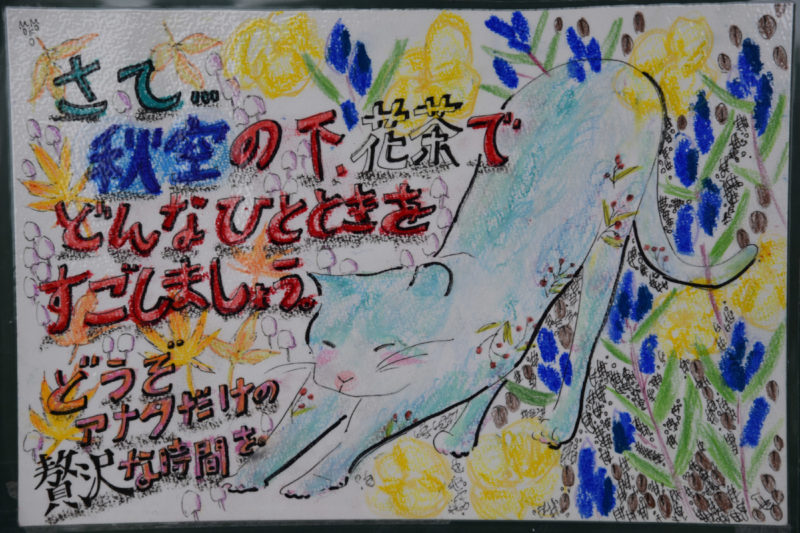 さて…
秋空の下、花茶で
どんなひとときを
すごしましょう。
どうぞ
アナタだけの
贅沢な時間を